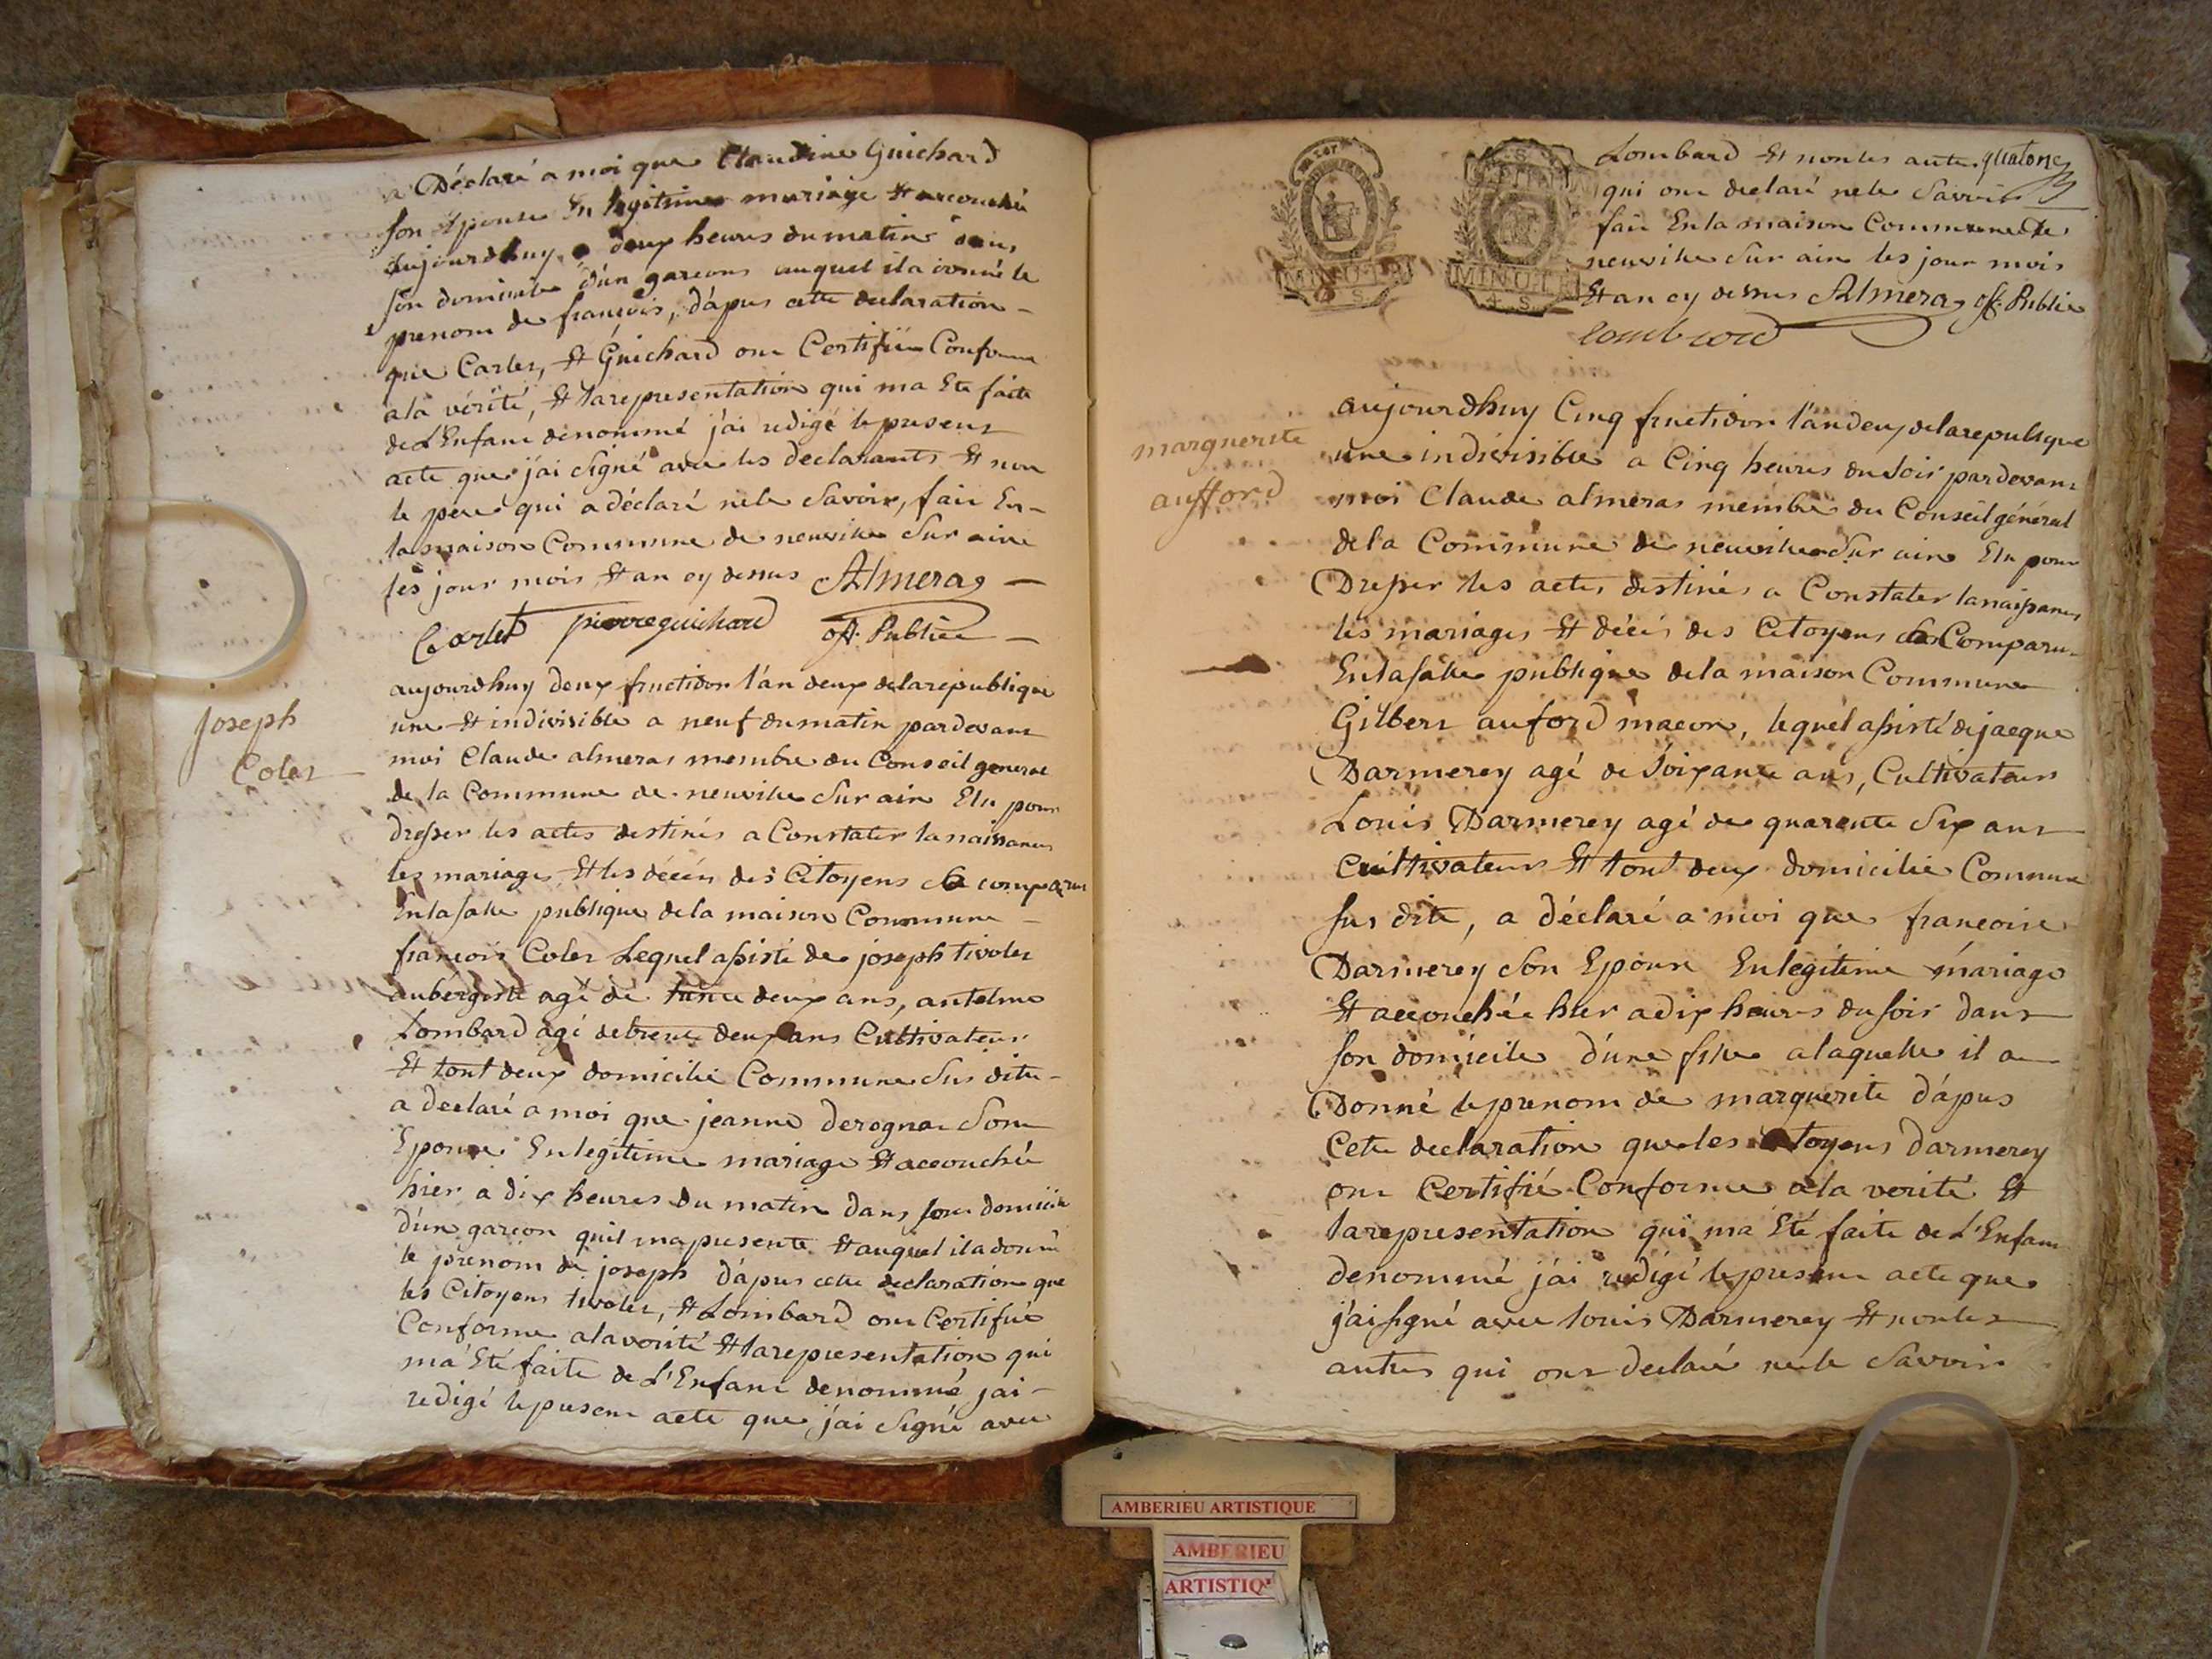 a Déclaré a moi que Claudine Guichard
son Epouse En legitime mariage Et accouchée
aujourdhuy a deux heures du matin dans
son domicile d'un garcons auquel il a donné le
prenom de françois, d'apres cette declaration –
que Carlet, Et Guichard ont Certifiée Conforme
a la vérité, Et la representation qui ma Eté faite
de L'Enfant denommé j'ai redigé le present
acte que j'ai signé avec les declarants Et non
le pere qui a déclaré ne le Savoir, fait En –
la maison Commune de neuville Sur ain
les jour mois Et an cy dessus Almeras –
Carlet pierre guichard off. Public –
Joseph
Colet
aujourdhuy deux fructidor l'an deux de la republique
une Et indivisible a neuf du matin pardevant
moi Claude almeras membre du Conseil general
de la Commune de neuville Sur ain Elu pour
dresser les actes destinés a Constater la naissance
les mariages Et les décés des Citoyens Est comparu
En la salle publique de la maison Commune –
francois Colet Lequel assisté de joseph tivolet
aubergiste agé de trente deux ans, antelme
Lombard agé de trente deux ans Cultivateur
Et tout deux domicilié Commune Sus dite –
a declaré a moi que jeanne derognat Son
Epouse En legitime mariage Et accouchée
hier a dix heures du matin dans son domicile
d'un garcon quil ma presenté Et auquel il a donné
le prenom de joseph d'apres cette declaration que
les Citoyens tivolet, Et Lombard ont Certifiée
Conforme a la verité Et la representation qui
ma Eté faite de L'Enfant denommé jai –
redigé le present acte que j'ai Signé avec
MINUTE
MINUTE
4. S.
Lombard Et non les autre quatorze
qui ont declaré ne le Savoir
fait En la maison Commune de
neuville Sur ain les jour mois
Et an cy dessus Almeras off. Public
Lombard
marguerite
aufford
aujourdhuy Cinq fructidor l'an deux de la republique
une indivisible a Cinq heures du Soir pardevant
moi Claude almeras membre du Conseil général
de la Commune de neuville Sur ain Elu pour
Dresser les actes destinés a Constater la naissance
les mariages Et décés des Citoyens Est Comparu
En la salle publique de la maison Commune
Gilbert auford macon, lequel assisté de jacque
Darmerey agé de Soixante ans, Cultivateur
Louis Darmerey agé de quarante Six ans
Cultivateur Et tout deux domicilié Commune
sus dite, a déclaré a moi que francoise
Darmerey Son Epouse En legitime mariage
Et accouchée hier a dix heures du soir dans
son domicile d'une fille a laquelle il a
Donné le prenom de marguerite d'apres
Cette declaration que les Citoyens Darmerey
ont Certifié Conforme a la verité Et
la representation qui ma Eté faite de L'Enfant
denommé j'ai redigé le present acte que
j'ai signé avec louis Darmerey Et non les
autres qui ont declaré ne le Savoir
AMBERIEU ARTISTIQUE
AMBERIEU
ARTISTIQ